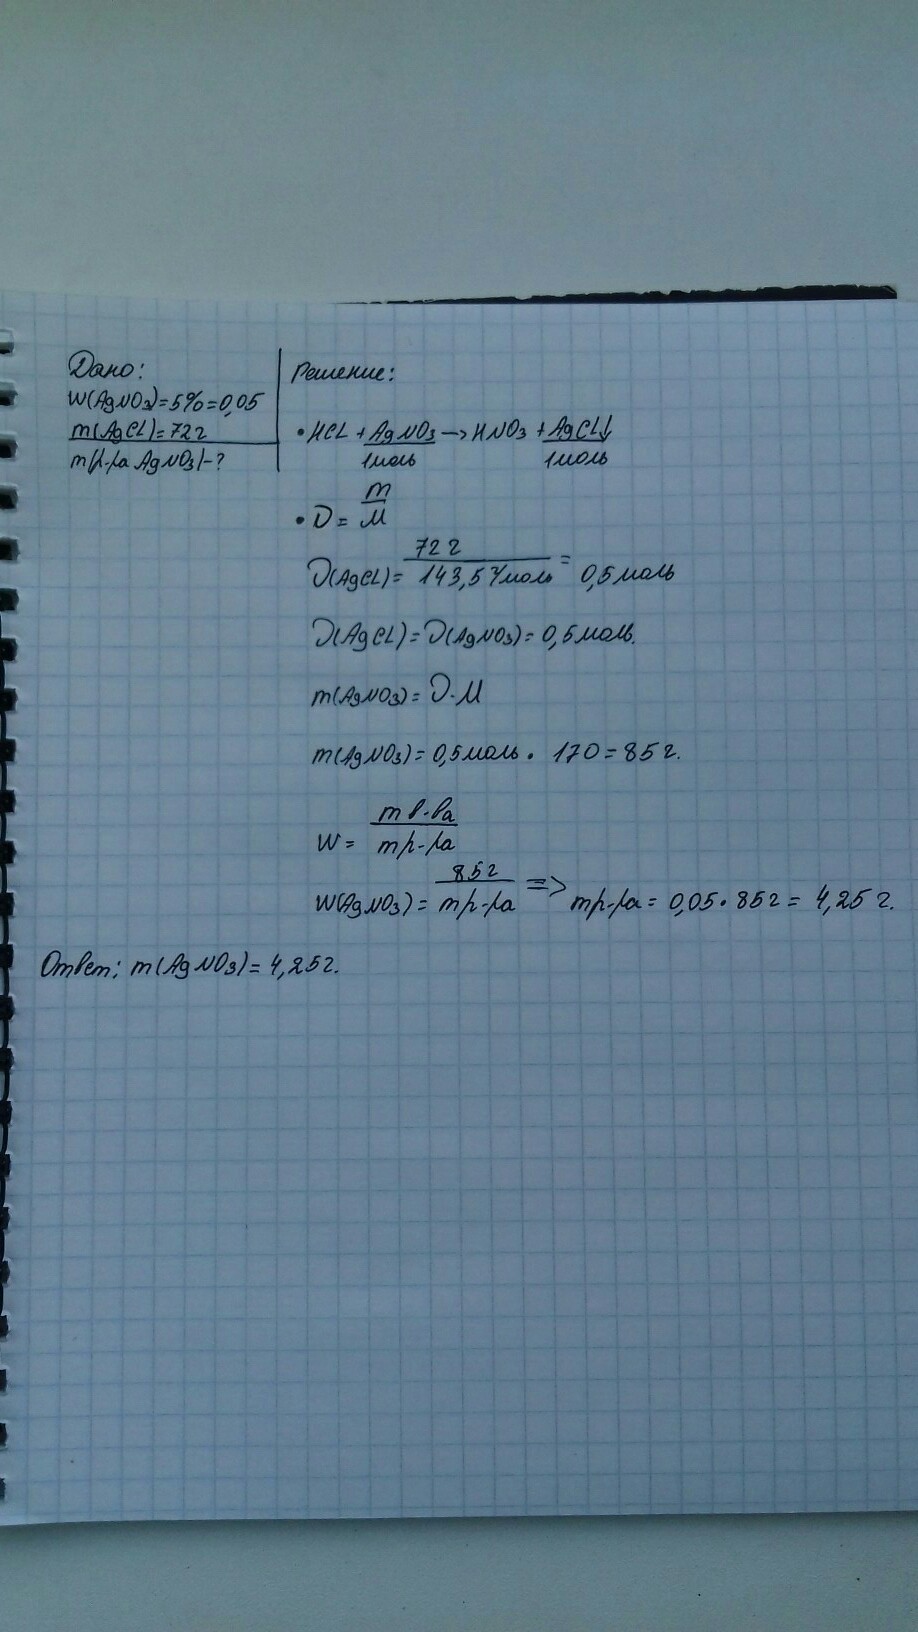 Дано:
W(AgNO3)=5%=0,05
m(AgCl)=72г
m(р-ра AgNO3)-?
Решение:
• HCl + AgNO3 → HNO3 + AgCl↓
1моль 1моль
• ν = m/M
ν(AgCl) = 72г/143,5г/моль = 0,5моль
ν(AgCl) = ν(AgNO3) = 0,5моль.
m(AgNO3) = ν·M
m(AgNO3) = 0,5моль · 170 = 85г.
W = m в-ва/m р-ра
W(AgNO3) = 85г/m р-ра => m р-ра = 0,05 · 85г = 4,25г.
Ответ: m(AgNO3) = 4,25г.